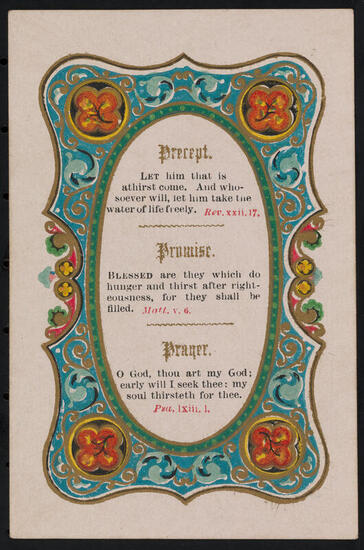 Precept.
LET him that is
athirst come. And who-
soever will, let him take the
water of life freely. Rev. xxii. 17.
Promise.
BLESSED are they which do
hunger and thirst after right-
eousness, for they shall be
filled. Matt. v. 6.
Prayer.
O God, thou art my God;
early will I seek thee: my
soul thirsteth for thee.
Psa. lxiii. 1.